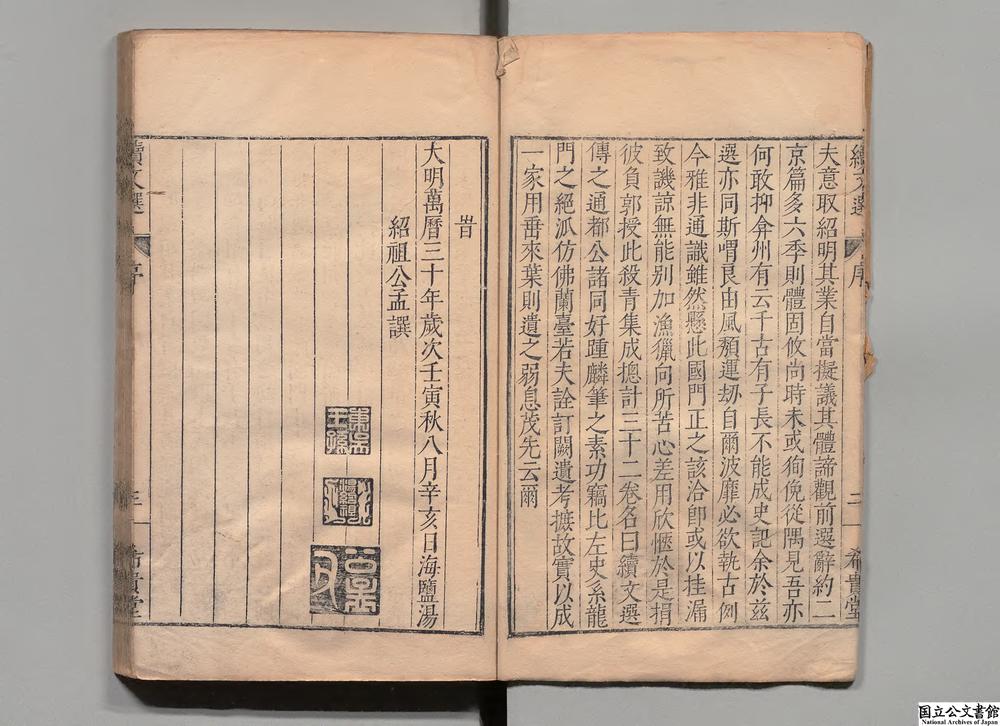 續文選 序 二 希貴堂
夫意取紹明其業自當擬議其體諦觀前選辭約二
京篇多六季則體固攸尚時未或徇俛從隅見吾亦
何敢抑弇州有云千古有子長不能成史記余於茲
選亦同斯喟良由風頹運劫自爾波靡必欲執古例
今雅非通識雖然懸此國門正之該洽卽或以挂漏
致譏諒無能別加漁獵向所苦心差用欣愜於是捐
彼負郭授此殺青集成摠計三十二卷名曰續文選
傳之通都公諸同好踵麟筆之素功竊比左史系龍
門之絕派仿佛蘭臺若夫詮訂闕遺考摭故實以成
一家用垂來葉則遺之弱息茂先云爾
旹
大明萬曆三十年歲次壬寅秋八月辛亥日海鹽湯
紹祖公孟譔
東吳王孫
公孟父
續文選 序 三 希貴堂
国立公文書館
National Archives of Japan